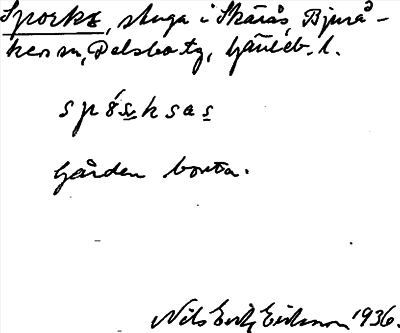 Sporks, stuga i Skärås, Bjurå-
kers sn, Delsbo tg, Gävleb. l.
spósksas
Gården borta.
Nils Erik Eriksson 1936.